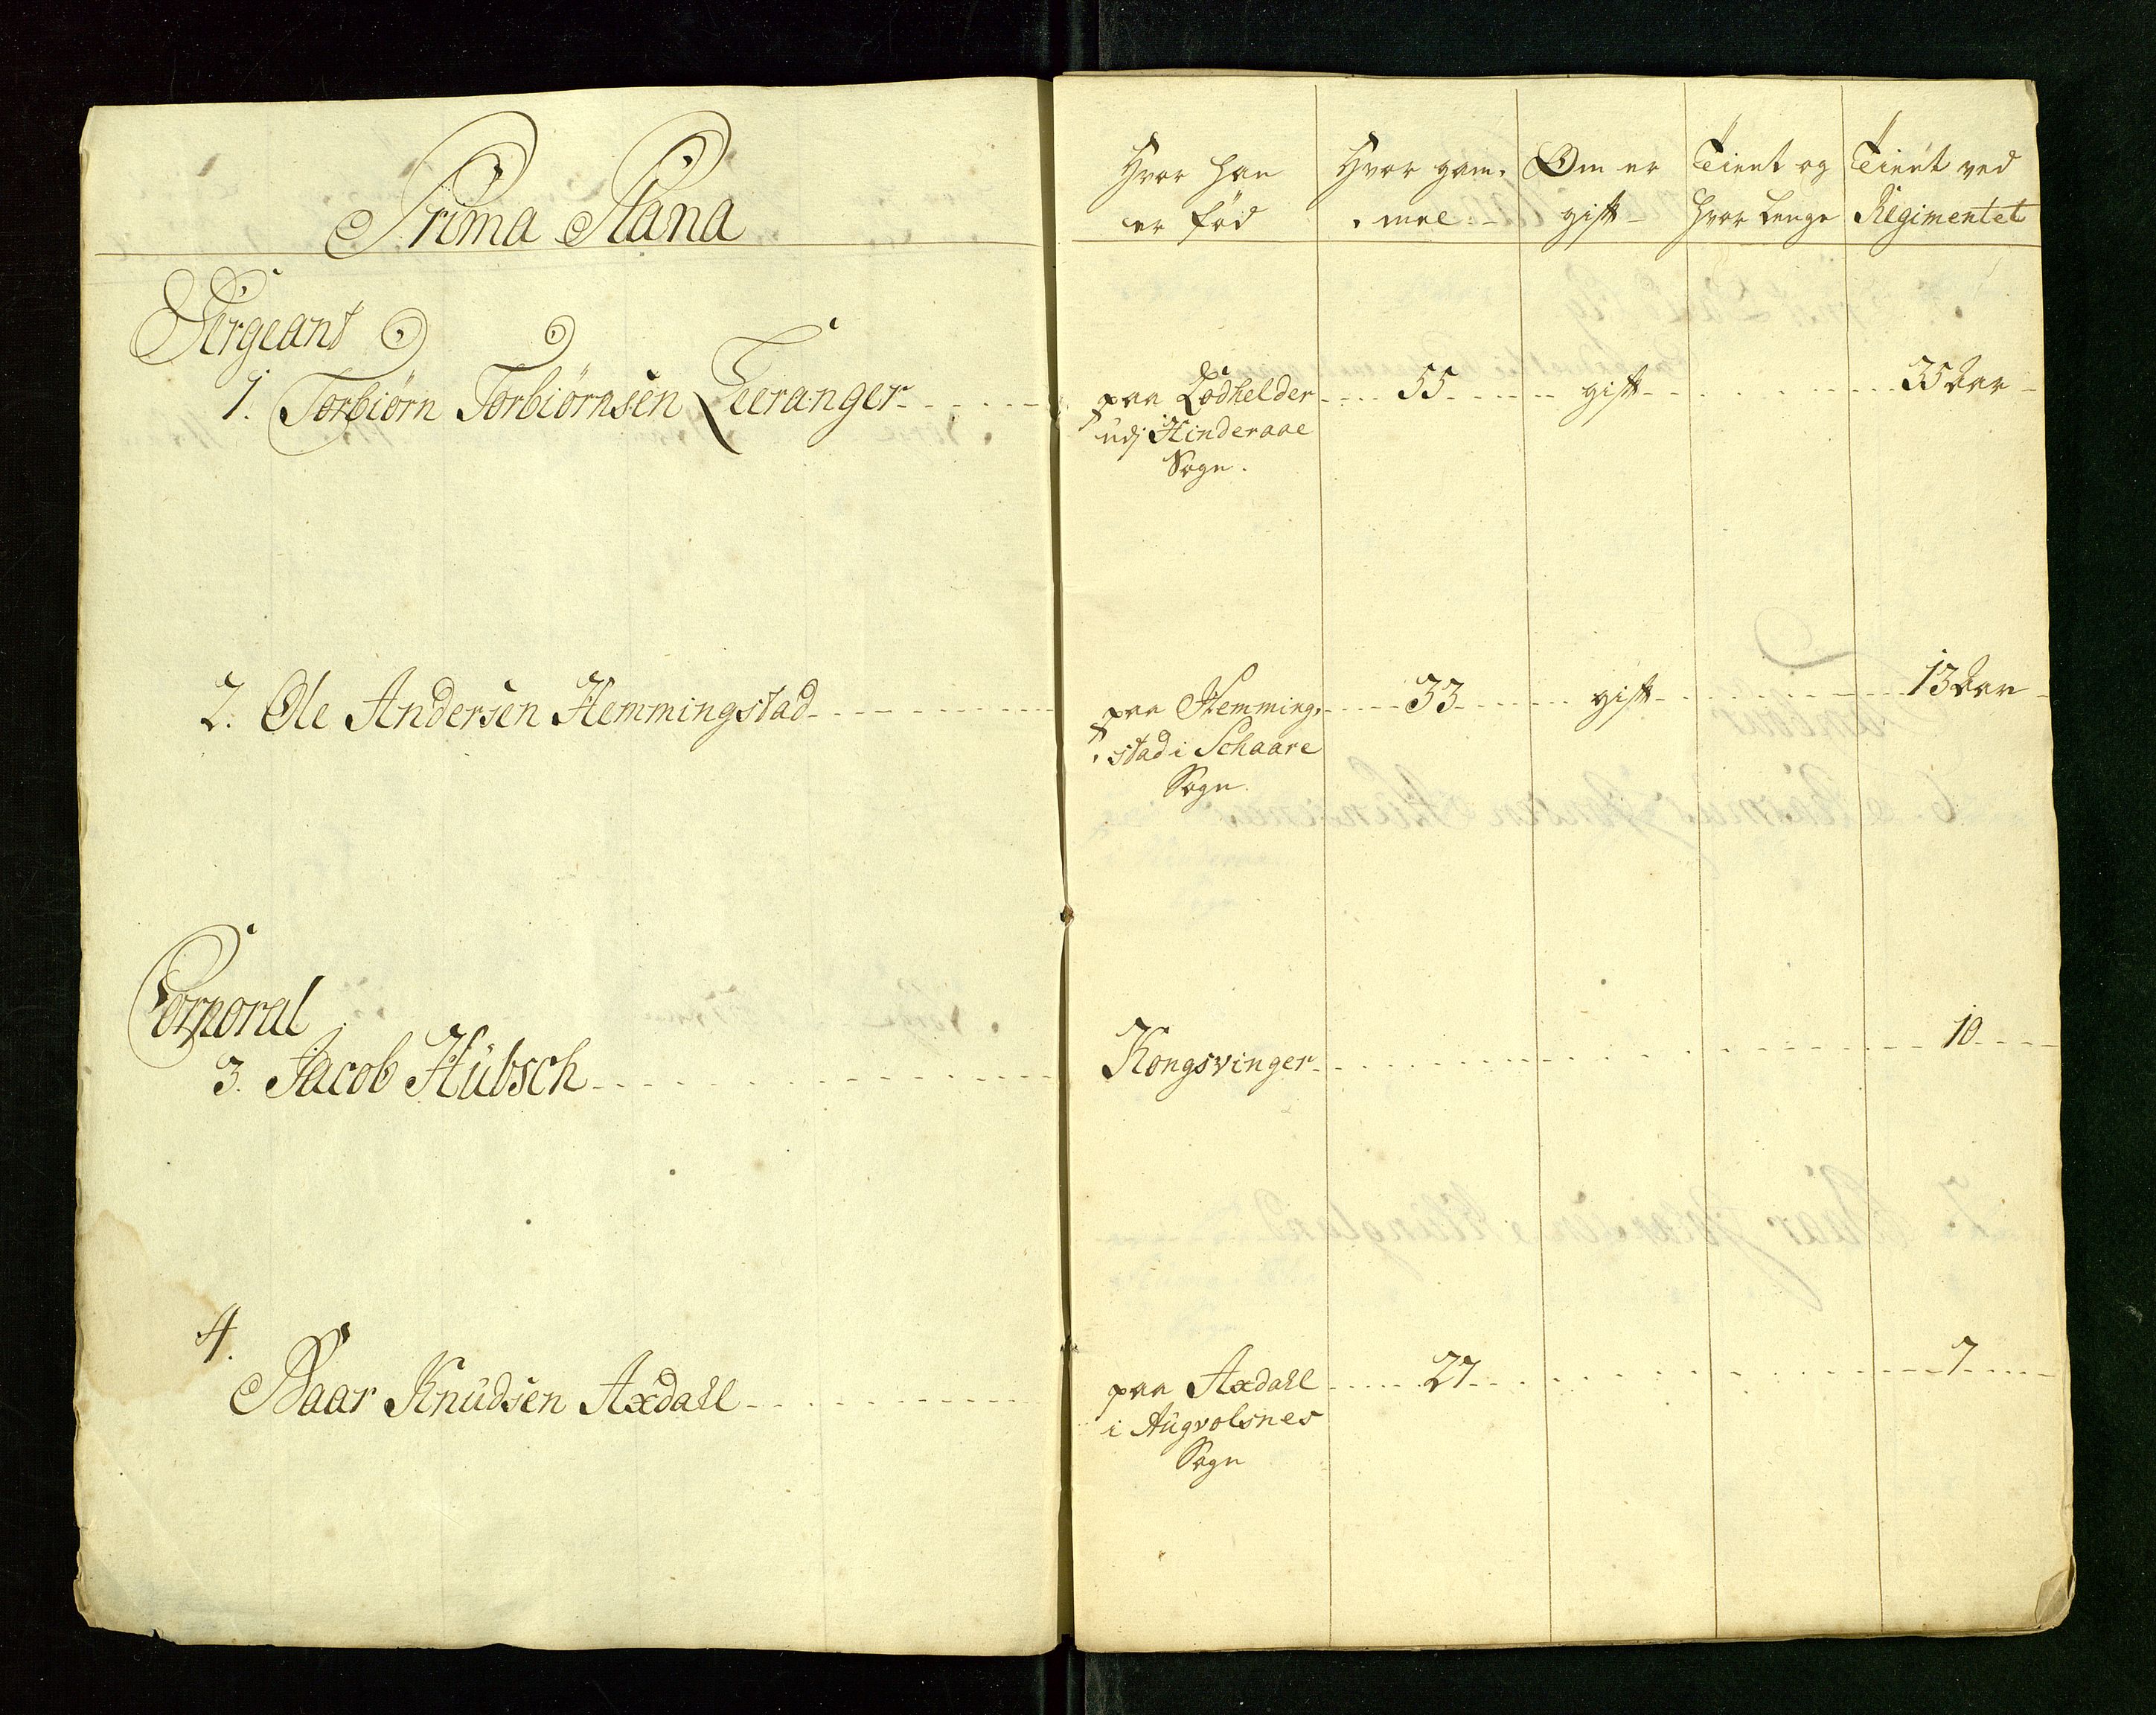 Prima Plana
Hvor han er fød | Hvor gam- mel | Om er gift | Tient og hvor lenge | Tient ved Regimentet
Sergeant
1. Torbiørn Torbiørnsen Leeranger | paa Lodhelder | 55 | gift | 35 Aar
udj Hinderaae
Sogn.
2. Ole Andersen Hemmingstad | paa Hemming- | 33 | gift | 13 Aar
stad i Schaare
Sogn
Corporal
3. Jacob Hübsch | Kongsvinger | 10
4.
Baar Knudsen Axdall | paa Axdall | 27 | 7
i Augvolsnes
Sogn